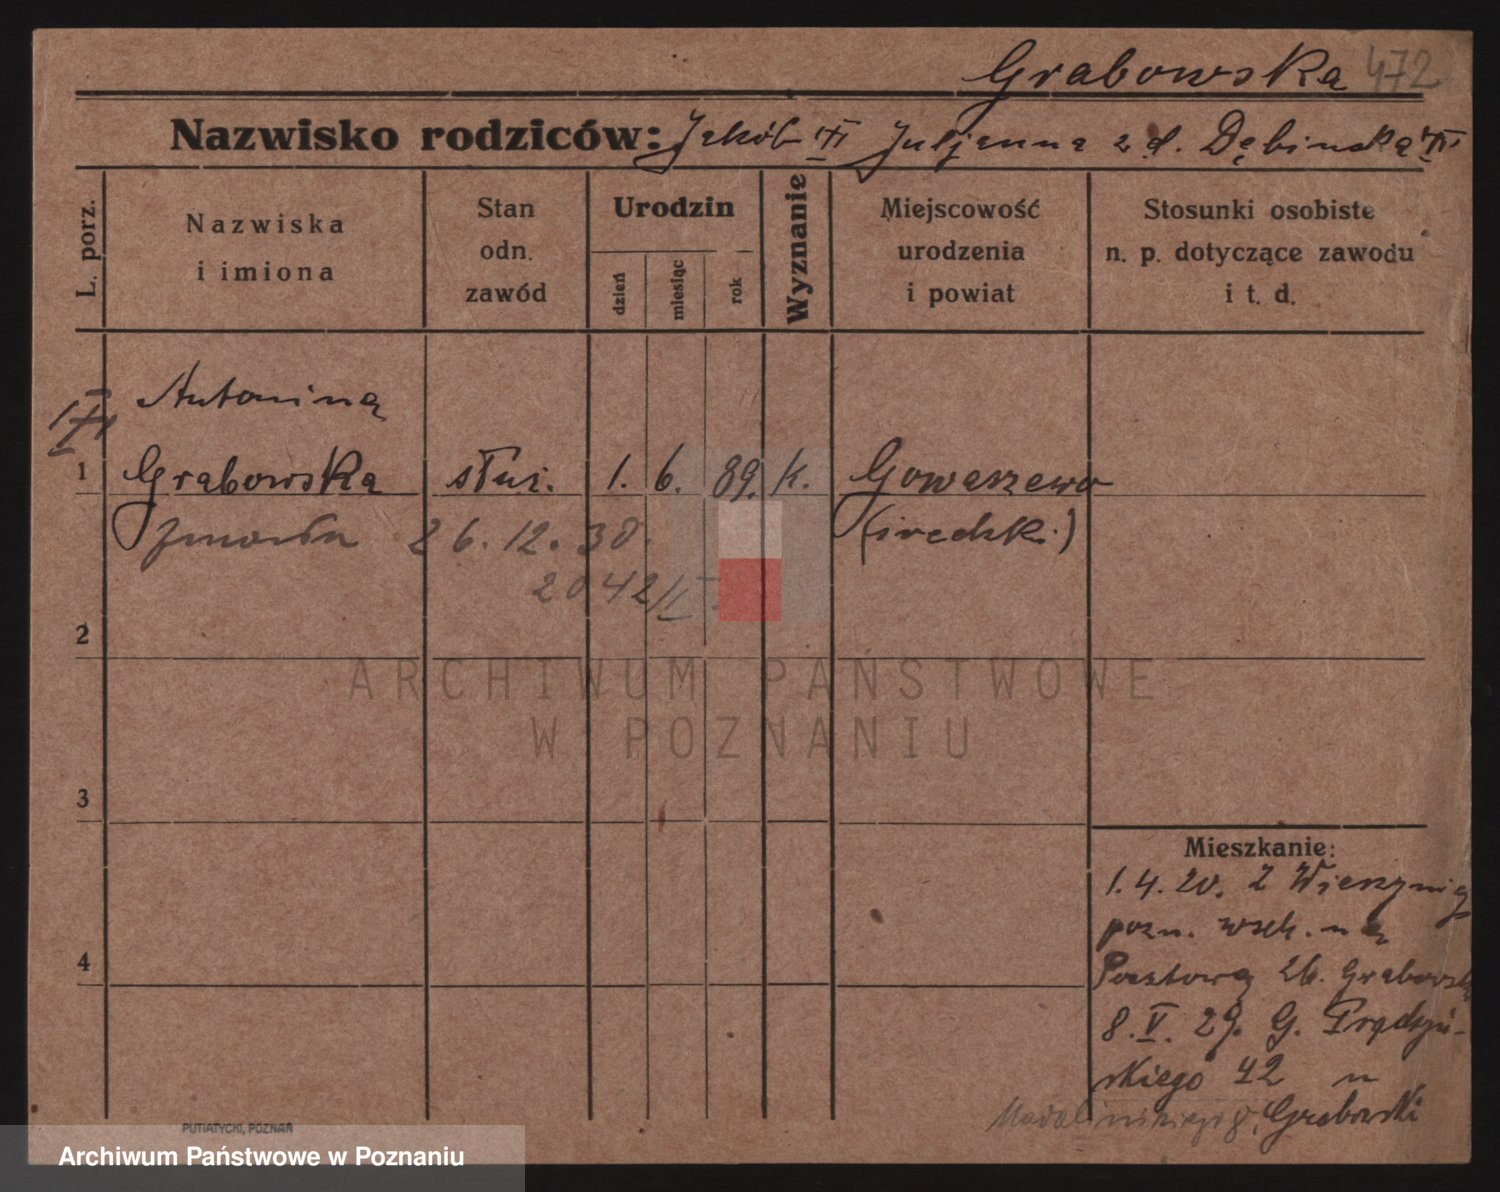 Grabowska 472
Nazwisko rodziców: Jakób Juljanna z d. Dębinska
L. porz.
Nazwiska
i imiona
Stan
odn.
zawód
Urodzin
dzień
miesiąc
rok
Wyznanie
Miejscowość
urodzenia
i powiat
Stosunki osobiste
n. p. dotyczące zawodu
i t. d.
Antonina
1 Grabowska służ. 1. 6. 89. k. Gowarzewo
Zmarła 26. 12. 30. (średzki)
2042/
2
ARCHIWUM PAŃSTWOWE
W POZNANIU
3
Mieszkanie:
1. 4. 20. Z
pozn. wsch. na
4
Pocztową 26. Grabowska
8. V. 29. G. Prądzyń-
skiego 42 u
Grabowski
PUTIATYCKI, POZNAŃ
Archiwum Państwowe w Poznaniu